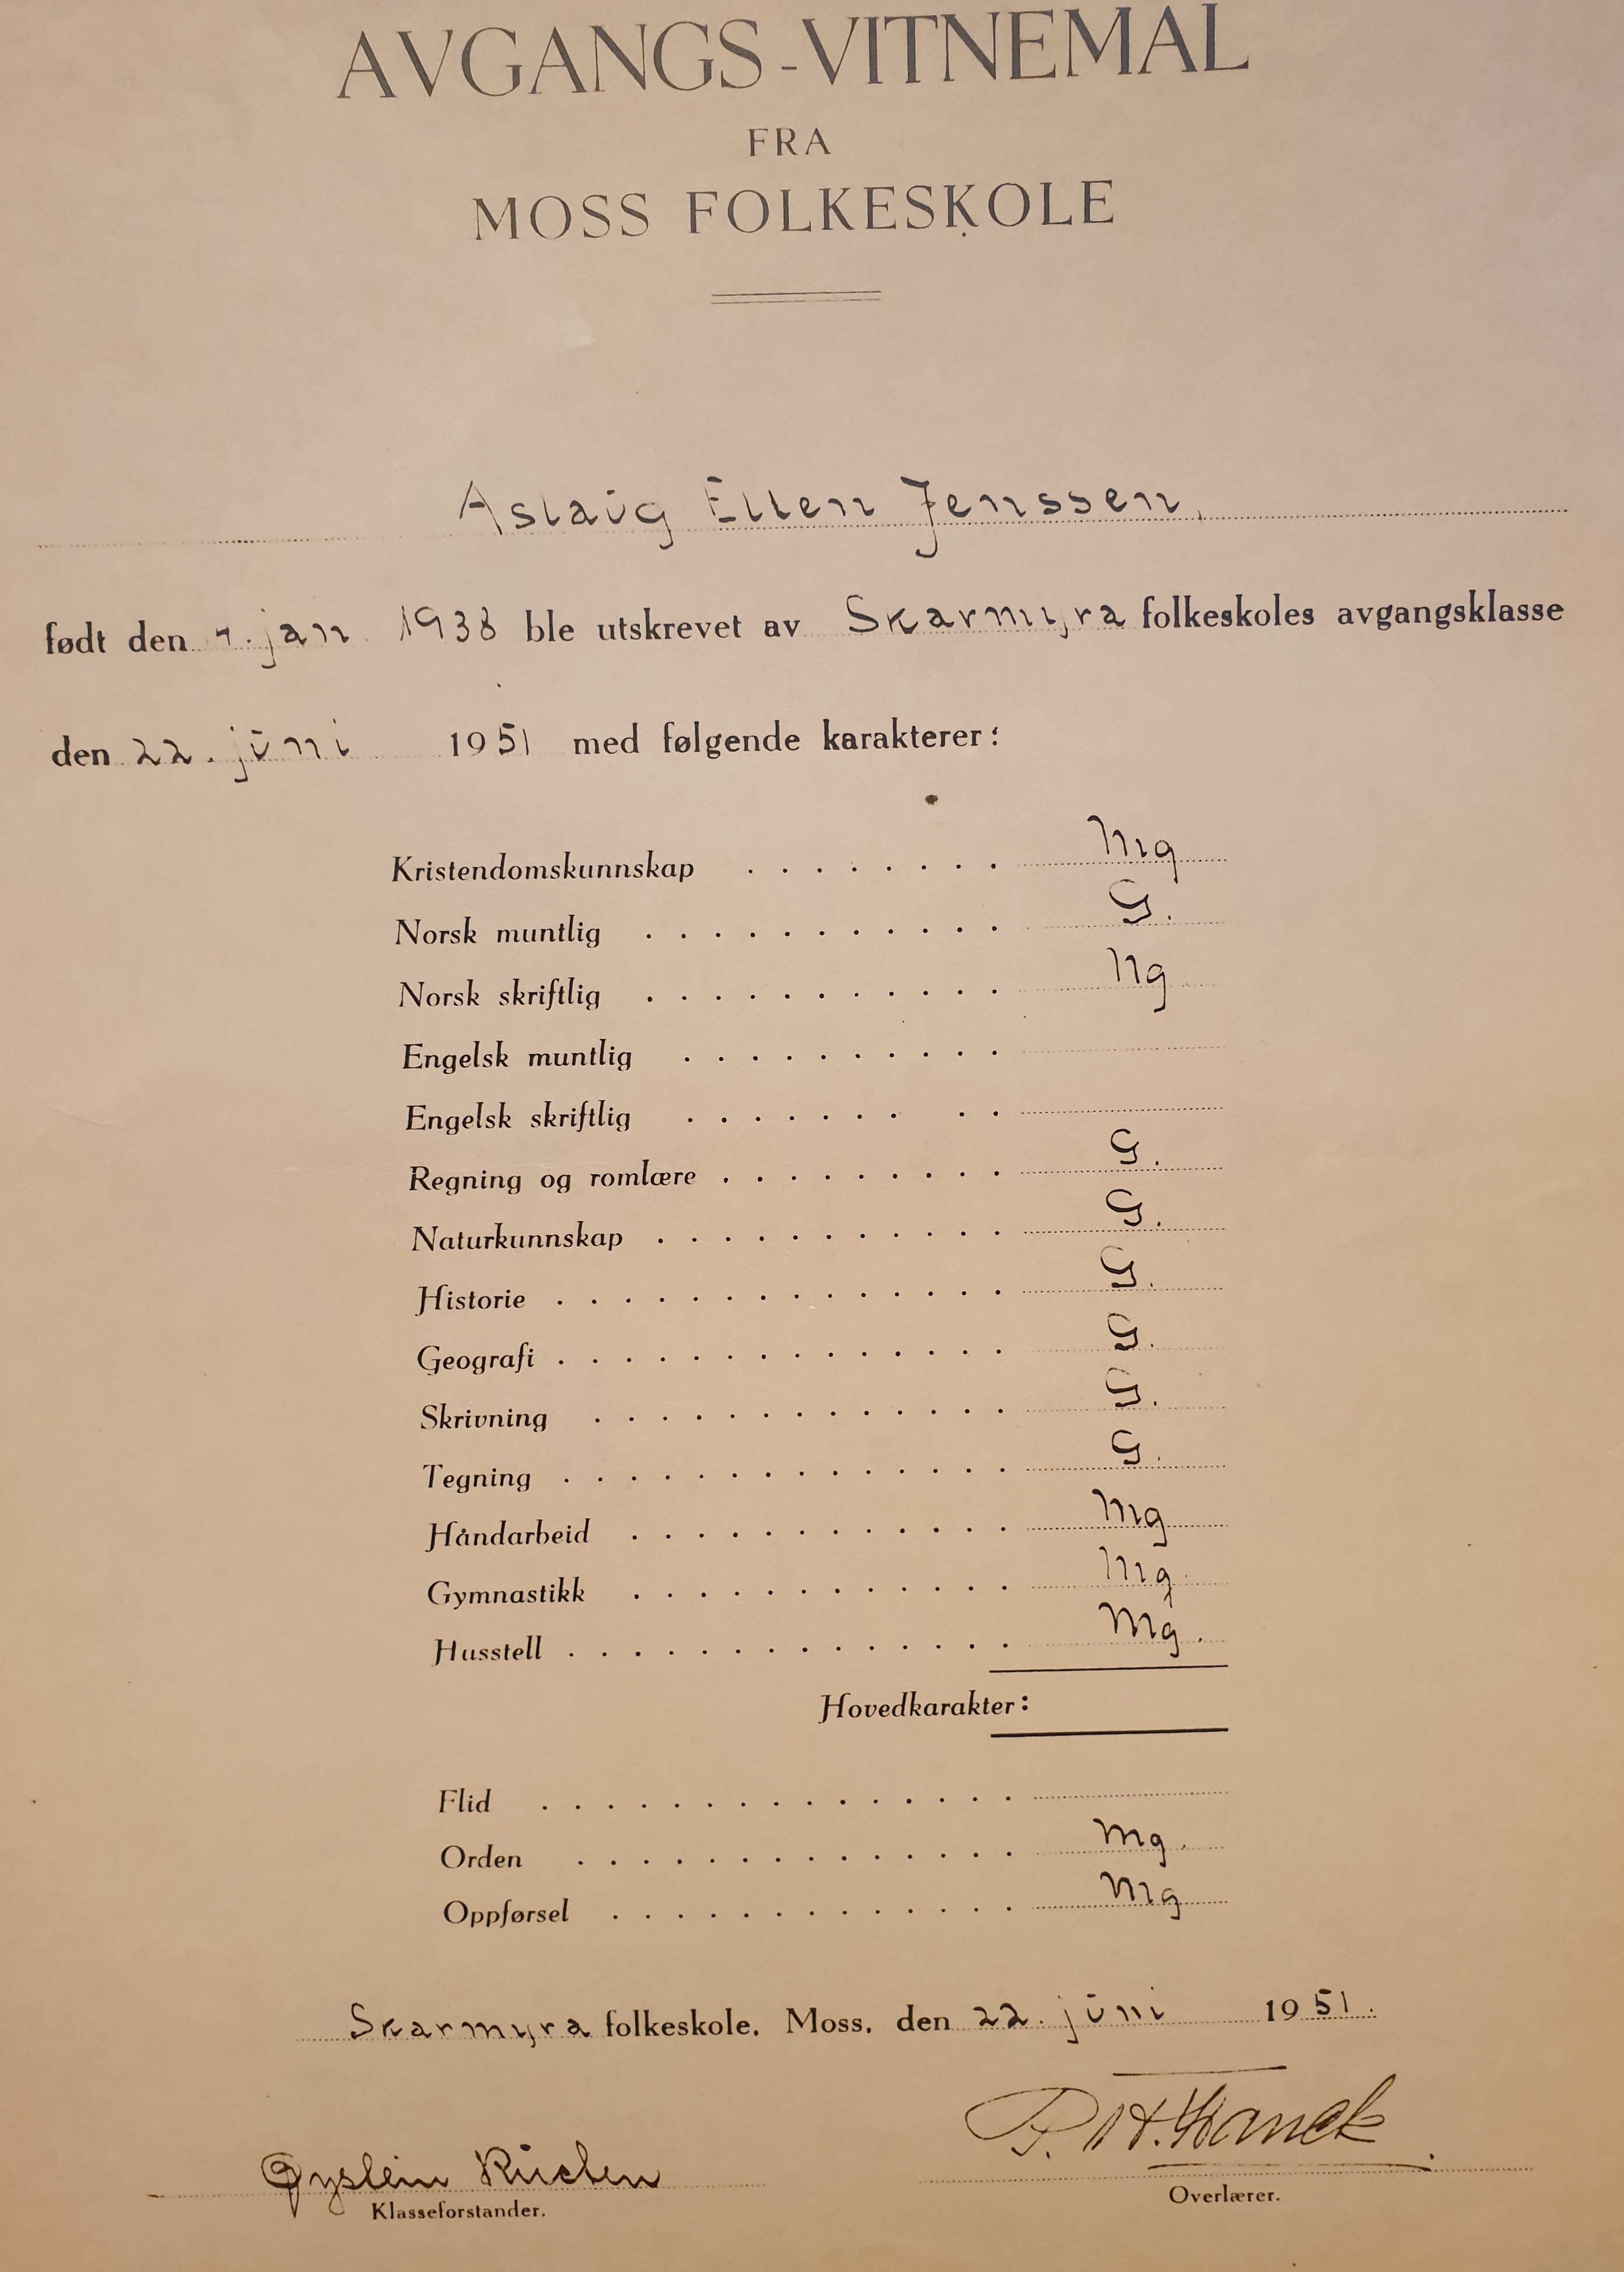 AVGANGS-VITNEMAL
FRA
MOSS FOLKESKOLE
Aslaug Ellen Jenssen,
født den 7. jan 1938 ble utskrevet av Skarmyra folkeskoles avgangsklasse
den 22. juni 1951 med følgende karakterer:
Kristendomskunnskap . . . . . . . . Mg
Norsk muntlig . . . . . . . . . . . G.
Norsk skriftlig . . . . . . . . . . . Ng
Engelsk muntlig . . . . . . . . . .
Engelsk skriftlig . . . . . . . . .
Regning og romlære . . . . . . . . . G.
Naturkunnskap . . . . . . . . . . . G.
Historie . . . . . . . . . . . . . . G.
Geografi . . . . . . . . . . . . . . G.
Skrivning . . . . . . . . . . . . . G.
Tegning . . . . . . . . . . . . . . G.
Håndarbeid . . . . . . . . . . . . Mg
Gymnastikk . . . . . . . . . . . . Mg.
Husstell . . . . . . . . . . . . . . Mg.
Hovedkarakter:
Flid . . . . . . . . . . . . . . .
Orden . . . . . . . . . . . . . . Mg.
Oppførsel . . . . . . . . . . . . . Mg
Skarmyra folkeskole. Moss. den 22. juni 1951.
Øystein
Klasseforstander.
Overlærer.